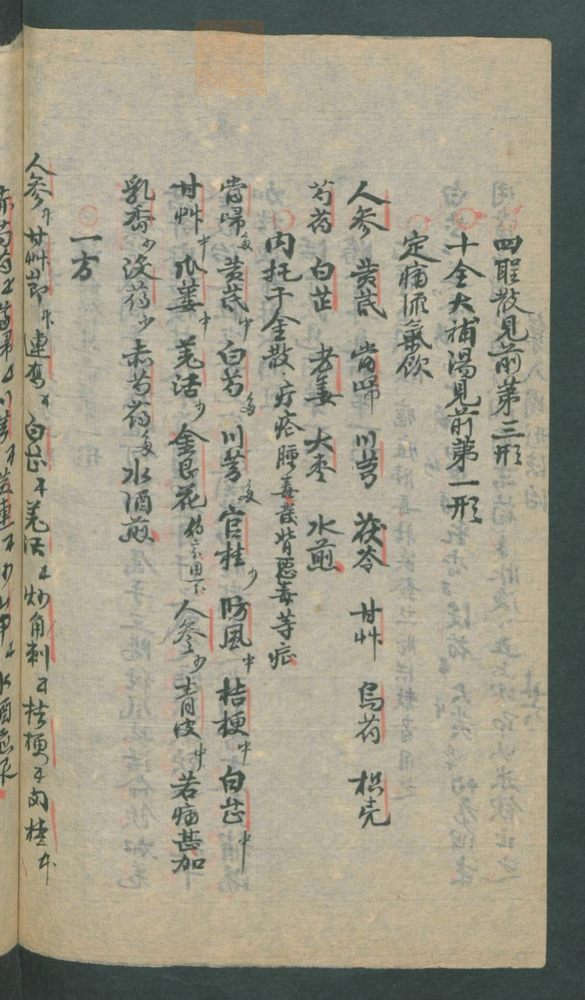 四聖散見前第三形
十全大補湯見前第一形
定痛流氣飲
人参 黄芪 當歸 川芎 茯苓 甘艸 烏药 枳壳
芍药 白芷 老姜 大枣 水煎
内托千金散 疗疮腫毒發背惡毒等症
當歸多 黄芪中 白芍多 川芎多 官桂少 防風中 桔梗中 白芷中
甘艸中 瓜蒌中 羌活少 金艮花 人参少 青皮中 若痛甚加
乳香少 没药少 赤芍药多 水酒煎
一方
人参 甘艸節 連翹 白芷 羌活 皂角刺 桔梗 肉桂
赤芍药 當歸 川芎 黄連 水酒煎